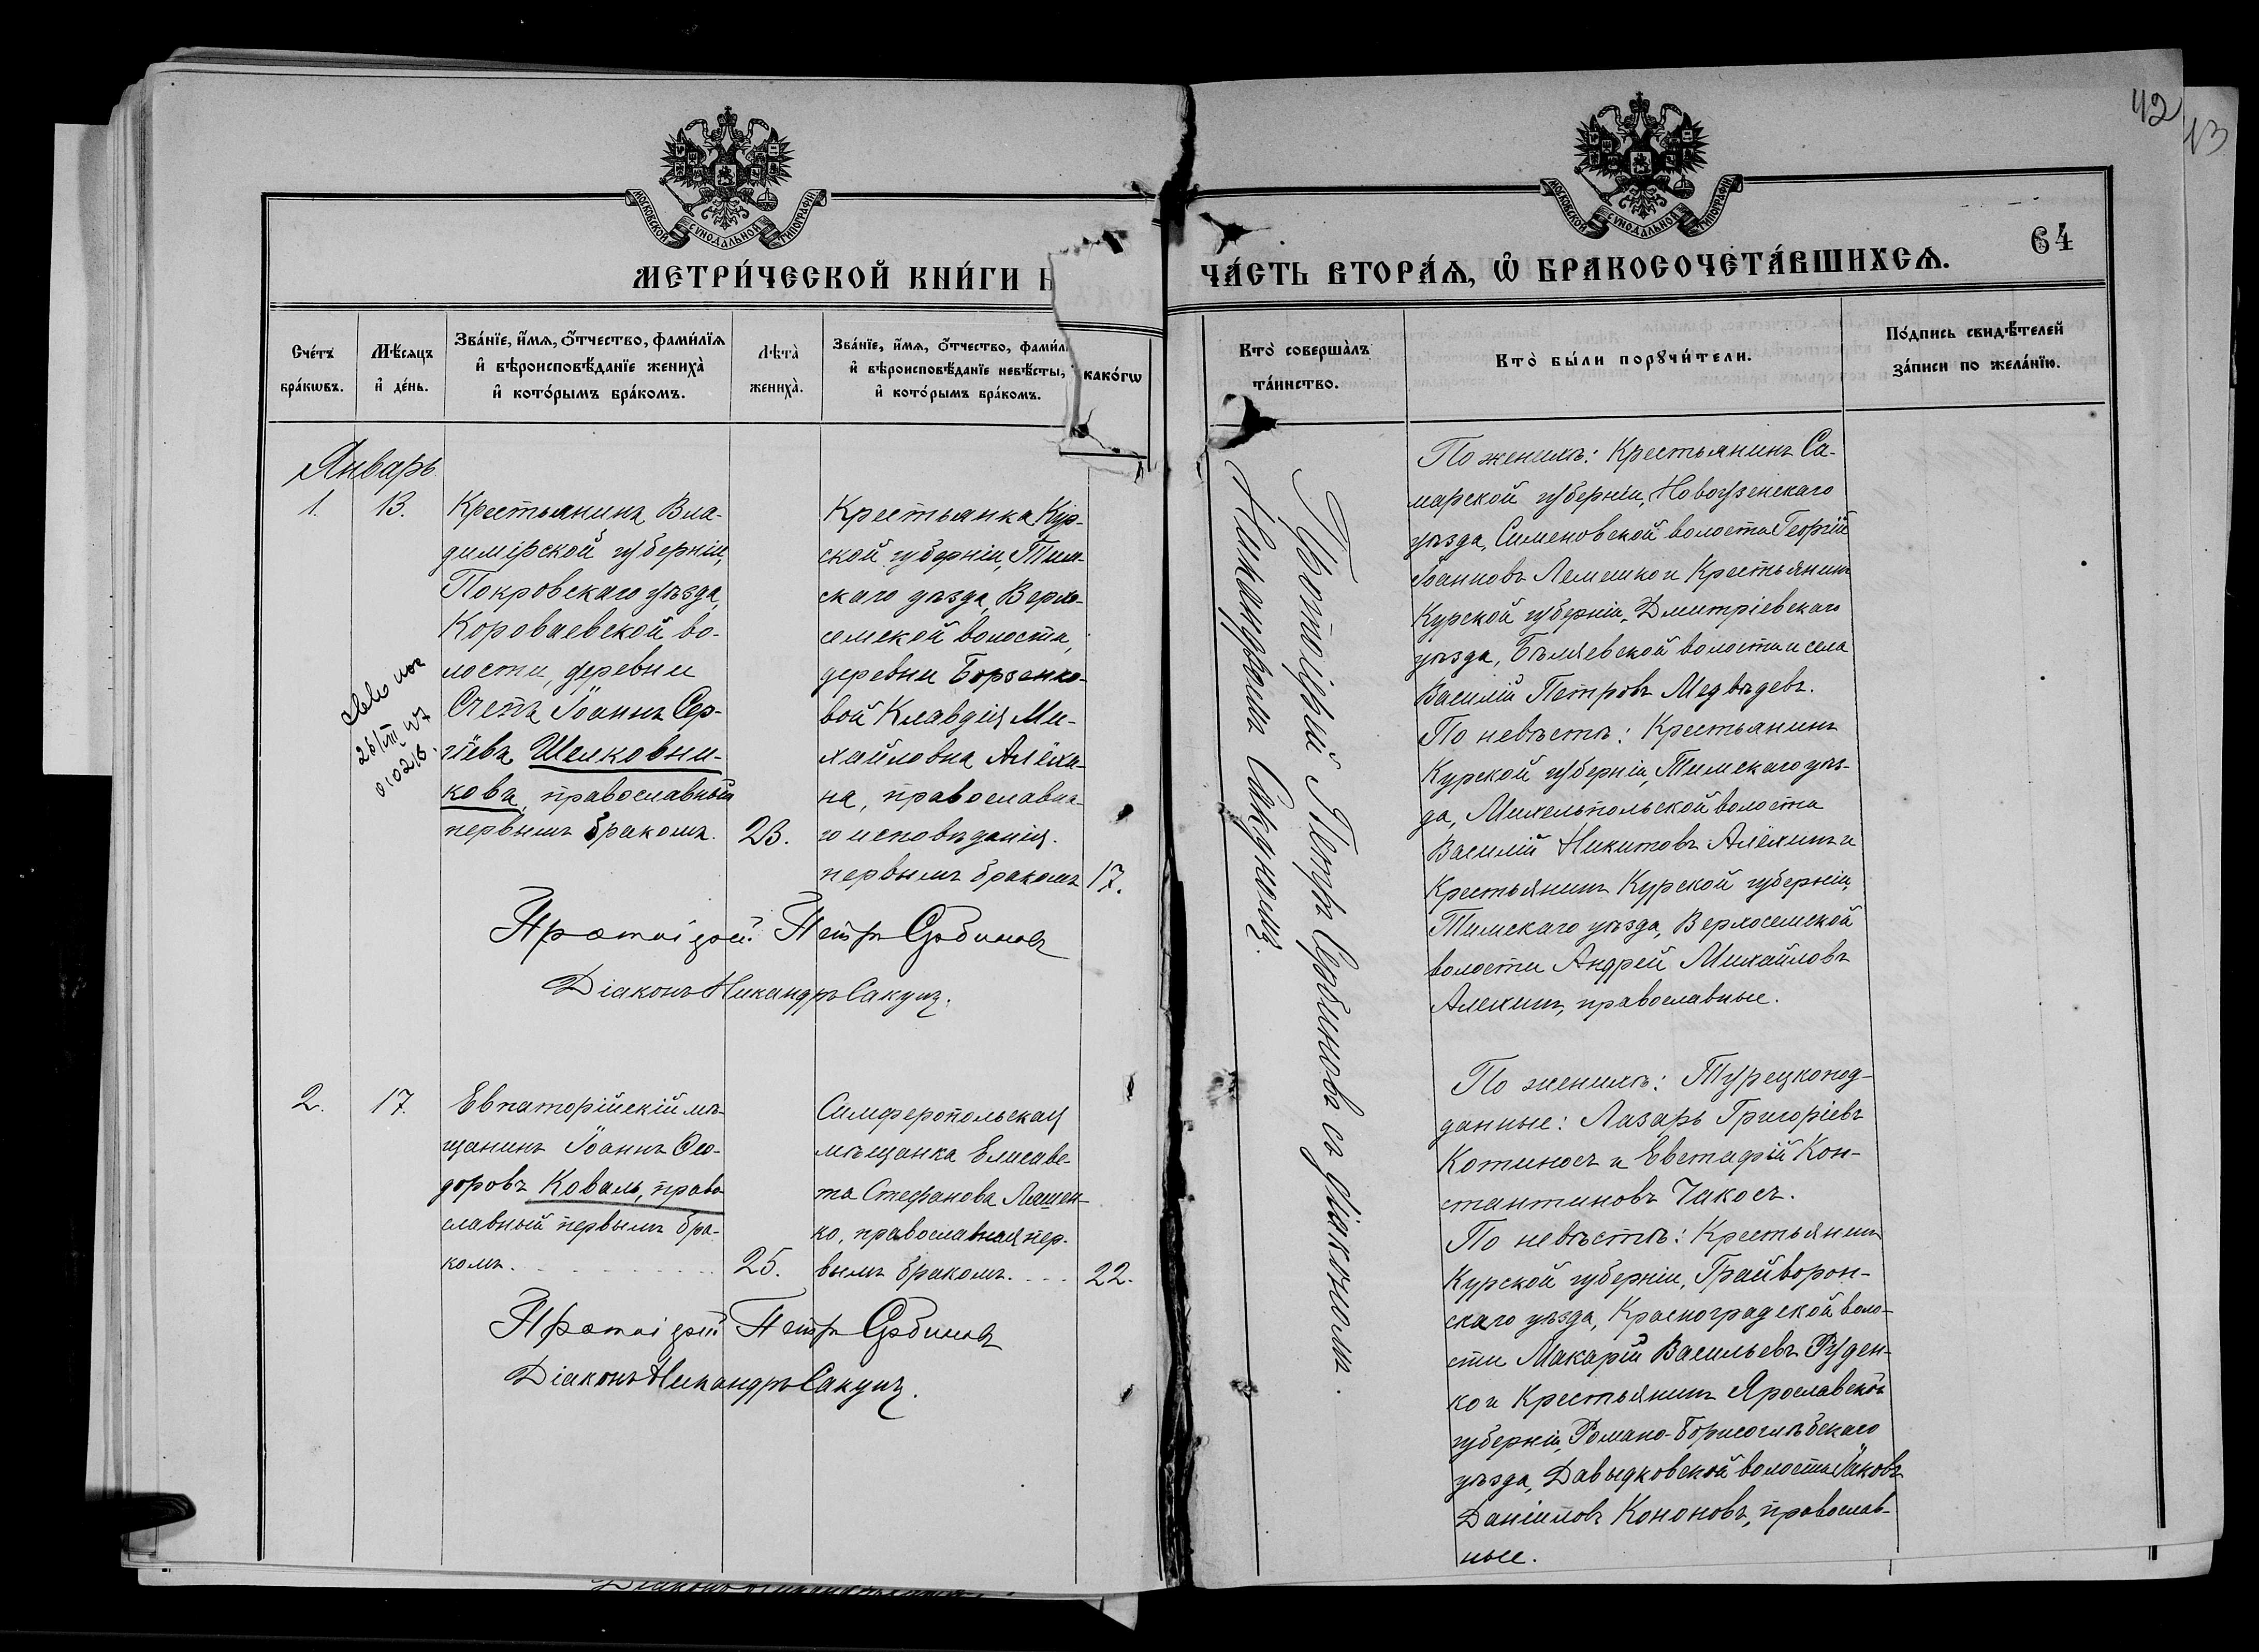 42
13
МОСКОВСКОЙ СѴНОДАЛЬНОЙ ТИПОГРАФІИ
МОСКОВСКОЙ СѴНОДАЛЬНОЙ ТИПОГРАФІИ
64
МЕТРИ́ЧЕСКОЙ КНИ́ГИ Н
ЧА́СТЬ ВТОРА́Ѧ, Ѽ БРАКОСОЧЕТА́ВШИХСѦ.
Сче́тъ
бра́кѡвъ.
Мѣ́сяцъ
и҆ де́нь.
Зва́нїе, и҆́мѧ, ѻ҆́тчество, фами́лїѧ
и҆ вѣроисповѣ́данїе жениха̀
и҆ кото́рымъ бра́комъ.
Лѣта̀
жениха̀.
Зва́нїе, и҆́мѧ, ѻ҆́тчество, фами́л
и҆ вѣроисповѣ́данїе невѣ́сты,
и҆ кото́рымъ бра́комъ.
како́гѡ
Кто̀ соверша́лъ
та́инство.
Кто̀ бы́ли порꙋчи́тели.
По́дпись свидѣ́телей
за́писи по жела́нїю.
Январь
1.
13.
Крестьянинъ Вла-
димірской губерніи,
Покровскаго уѣзда,
Короваевской во-
лости, деревни
Іоаннъ Сер-
гіевъ Шелковни-
ковъ, православный
первымъ бракомъ.
23.
26/III
010216.
Крестьянка Кур-
ской губерніи, Тим-
скаго уѣзда, Верхо-
семской волости,
деревни Борзенко-
вой Клавдія Ми-
хайловна Алёхи-
на, православна-
го исповѣданія.
первымъ бракомъ
17.
Протоіерей Петръ Сербиновъ
Діаконъ Никандръ Сакунъ.
Протоіерей Петръ Сербиновъ съ діакономъ
Никандромъ Сакуномъ.
По женихѣ: Крестьянинъ Са-
марской губерніи, Новоузенскаго
уѣзда, Семеновской волости Георгій
Іоанновъ Лемешко и Крестьянинъ
Курской губерніи, Дмитріевскаго
уѣзда, Бѣляевской волости и села
Василій Петровъ Медвѣдевъ.
По невѣстѣ: Крестьянинъ
Курской губерніи, Тимскаго уѣз-
да, Михельпольской волости
Василій Никитовъ Алёхинъ и
Крестьянинъ Курской губерніи,
Тимскаго уѣзда, Верхосемской
волости Андрей Михайловъ
Алехинъ, православные.
2.
17.
Евпаторійскій мѣ-
щанинъ Іоаннъ Ѳео-
доровъ Коваль, право-
славный первымъ бра-
комъ.
25.
Симферопольская
мѣщанка Елисаве-
та Стефанова Ляшен-
ко, православная пер-
вымъ бракомъ.
22.
Протоіерей Петръ Сербиновъ
Діаконъ Никандръ Сакунъ.
По женихѣ: Турецкопод-
данные: Лазарь Григоріевъ
Котиносъ и Евстафій Кон-
стантиновъ Чакосъ.
По невѣстѣ: Крестьянинъ
Курской губерніи, Грайворон-
скаго уѣзда, Красноградской воло-
сти Макарій Васильевъ Руден-
ко и Крестьянинъ Ярославской
губерніи, Романо-Борисоглѣбскаго
уѣзда, Давыдковской волости Іаковъ
Даніиловъ Кононовъ, православ-
ные.